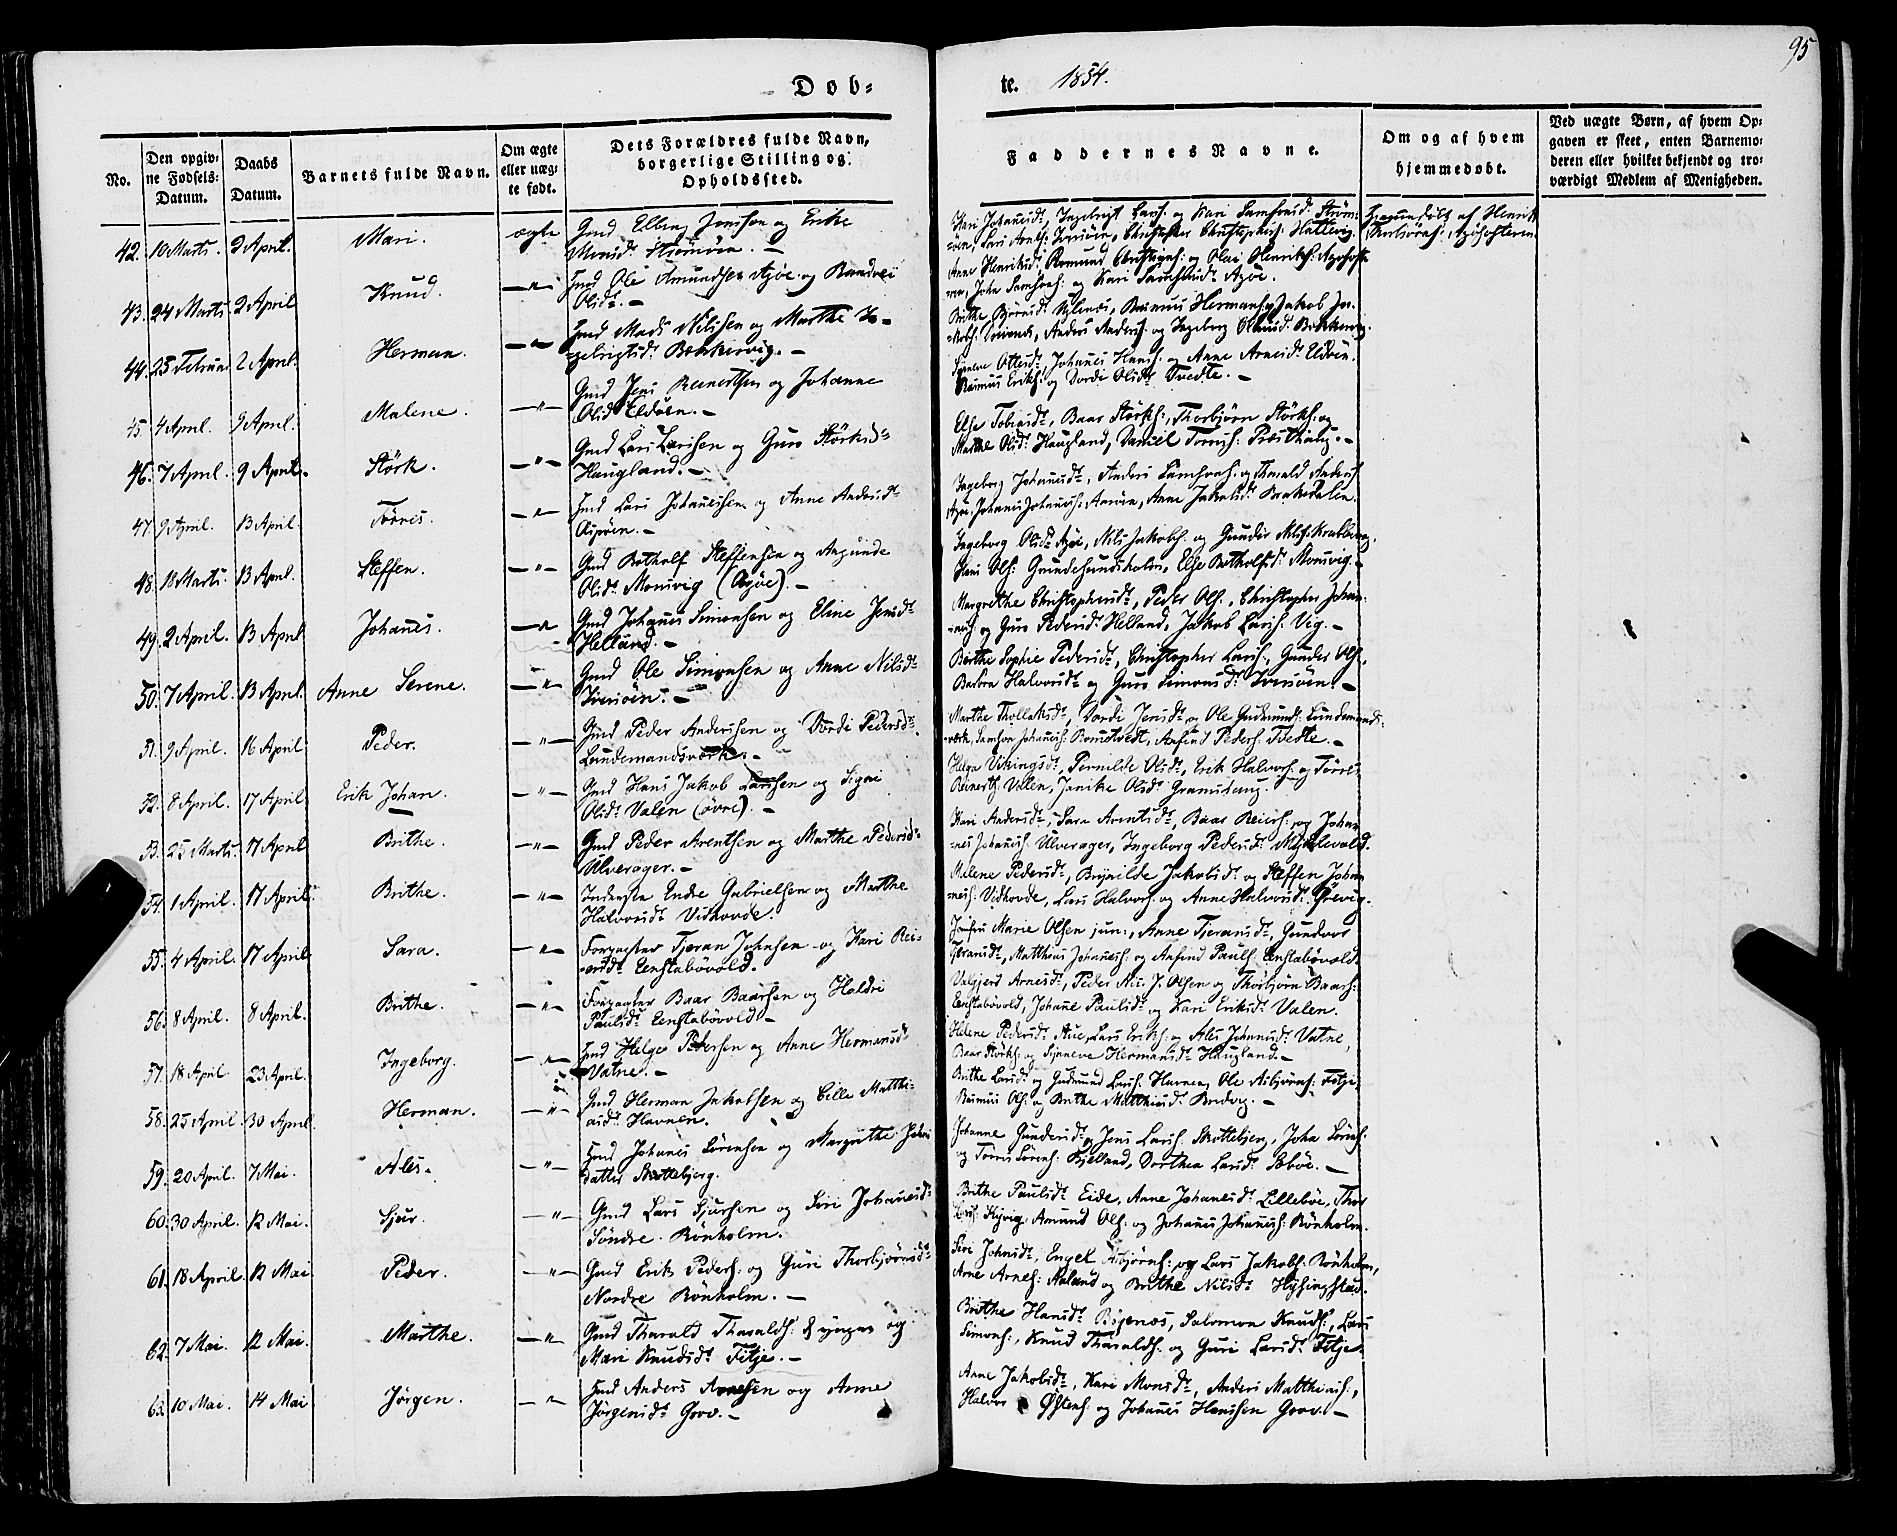 95
Døb=
te. 1854.
No.
Den opgiv=
ne Fødsels=
Datum.
Daabs
Datum.
Barnets fulde Navn.
Om ægte
eller uæg=
te født.
Dets Forældres fulde Navn,
borgerlige Stilling og
Opholdssted.
Faddernes Navne.
Om og af hvem
hjemmedøbt.
Ved uægte Børn, af hvem Op=
gaven er skeet, enten Barnemo=
deren eller hvilket bekjendt og tro=
værdigt Medlem af Menigheden.
42. 10 Marts. 2 April. Mari. ægte Gmd Elling Jensen og Erike
Monsdr
Kari Johannesdr, Ingebrigt Larss. og Kari Samsonsdr
Christopher Christophers: Hattevig.
Hjemmedøbt af Henrik
43. 24 Marts. 2 April Knud. —"— Gmd Ole Amundsen Agøe og Randvei
Olsdr. —
Anne Henriksdr Romund Christians: og Olai Henriks:
John Samsons: og Kari Samsonsdr Agøe.
44. 25 Februar 2 April. Herman. —"— Gmd Mads Nilssen og Marthe In=
gebrigtsdr Bekkervig. —
Brithe Bjørnsdr Rasmus Hermans: Jakob Ja=
kobs: Anders Anders: og Ingeborg Olsdr Bekkervig.
45. 4 April. 9 April. Malene. —"— Gmd Jens Reinertsen og Johanne
Olsdr Eldøen. —
Synneve Ottesdr, Johannes Hanss. og Anne Arnesdr Eldøen.
Rasmus Eriks: og Dordi Olsdr Tvedte. —
46. 7 April. 9 April. Størk. —"— Gmd Lars Larssen og Guro Størksdr
Haugland. —
Else Tobiasdr, Baar Størks:, Thorbjørn Størks: og
Marthe Olsdr Haugland, Daniel
47. 9 April. 13 April. Tørres. —"— Gmd Lars Johannessen og Anne Andersdr
Ingeborg Johannesdr, Anders Samsons. og Tharald Anders:
Johannes Johanness: Anne Jakobsdr
48. 18 Marts. 13 April. Steffen. —"— Gmd Botholf Steffensen og Aagunde
Olsdr Mousvig (Agøe). —
Ingeborg Olsdr Agøe, Nils Jakobs. og Gunder Nils:
Ols: Else Botholfsdr Mousvig. —
49. 2 April. 13 April Johannes. —"— Gmd Johannes Simonsen og Eline Jensdr
Helland. —
Margrethe Christophersdr, Peder Ols., Christopher Johan=
ness: og Guro Pedersdr Helland, Jakob Larss. Vig. —
50. 7 April. 13 April. Anne Serene. —"— Gmd Ole Simonsen og Anne Nilsdr
Iversøen. —
Berthe Sophie Pedersdr, Christopher Larss., Gunder Ols.,
Barbra Halvorsdr og Guro Simonsdr Iversøen. —
51. 9 April. 16 April Peder. —"— Gmd Peder Anderssen og Dordi Pedersdr
Lundemandsværk. —
Marthe Thollaksdr, Dordi Jensdr og Ole Gudmunds. Lundemands=
værk, Samson Johanness. Anfind Peders. Tvedte. —
52. 8 April. 17 April Erik Johan. —"— Gmd Hans Jakob Larssen og Signi
Olsdr Valen (øvre). —
Helga Vikingsdr, Pernilde Olsdr, Erik Halvors. og Tørres
Reinerts. Valen, Janike Olsdr
53. 25 Marts. 17 April Brithe. —"— Gmd Peder Arentsen og Marthe Pedersdr
Ulverager. —
Kari Andersdr, Sara Arentsdr, Baar Reiers: og Johan=
nes Johanness. Ulverager, Ingeborg Pedersdr Myklevold.
54. 1 April. 17 April. Brithe. —"— Inderste Endre Gabrielsen og Marthe
Halvorsdr Vidhovde.
Malene Pedersdr, Brynilde Jakobsdr og Steffen Johan=
ness: Vidhovde, Lars Halvors. og Anne Halvorsdr
55. 4 April. 17 April Sara. —"— Forpagter Tjeran Johnsen og Kari Rei=
ersdr Eenstabøvold.
Jomfru Marie Olsen jun:, Anne Tjeransdr, Gundvor
Tjeransdr, Matthias Johanness: og Anfind Pauls. Eenstabøvold.
56. 8 April. 8 April. Brithe. —"— Forpagter Baar Baarsen og Haldri
Paulsdr Eenstabøvold. —
Valgjerd Arnesdr, Peder Nic. J. Olsen og Thorbjørn Baars:
Eenstabøvold, Johanne Paulsdr og Kari Eriksdr Valen.
57. 18 April. 23 April. Ingeborg. —"— Gmd Helge Pedersen og Anne Hermansdr
Vatne. —
Helene Pedersdr Stue, Lars Eriks. og Ales Johannesdr Vatne,
Baar Størks. og Synneve Hermansdr Haugland. —
58. 25 April. 30 April. Herman. —"— Gmd Herman Jakobsen og Cille Matthi=
asdr Havnen.
Brithe Larsdr og Gudmund Larss. Havnen, Ole Asbjørns: Fitje,
Rasmus Ols: og Brithe Matthiasdr
59. 20 April. 7 Mai. Ales. —"— Gmd Johannes Sørensen og Margrethe Jens
datter Skottebjerg.
Johanne Gundersdr og Jens Larss. Skottebjerg, John Sørens:
og Tørres Sørens. Hjelland, Dorthea Larsdr Søbøe. —
60. 30 April. 12 Mai. Sjur. —"— Gmd Lars Sjursen og Siri Johannesdr
Søndre Rønholm.
Brithe Paulsdr Eide, Anne Johannesdr Lillebøe, Thor
Amund Ols: og Johannes Johanness: Rønholm.
61. 18 April. 12 Mai. Peder. —"— Gmd Erik Peders. og Guri Thorbjørnsdr
Nordre Rønholm. —
Siri Johnsdr, Engel Asbjørns: og Lars Jakobs. Rønholm,
Arne Arnes: Aaland og Brithe Nilsdr
62. 7 Mai. 12 Mai. Marthe. —"— Gmd Tharald Tharalds: d yngre og
Mari Knudsdr Fitje. —
Brithe Hansdr Salomon Knuds., Lars
Simons:, Knud Tharalds. og Guri Larsdr Fitje.
63. 10 Mai. 14 Mai Jørgen. —"— Gmd Anders Arnesen og Anne
Jørgensdr Grov. —
Anne Jakobsdr, Kari Monsdr, Anders Matthias:,
Halvor Østens. og Johannes Hanssen Grov. —